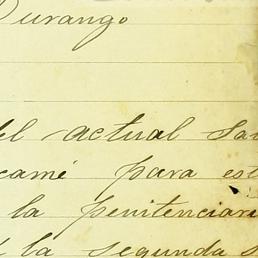 Durango
del actual sa
camé para est
la penitenciari
la segunda